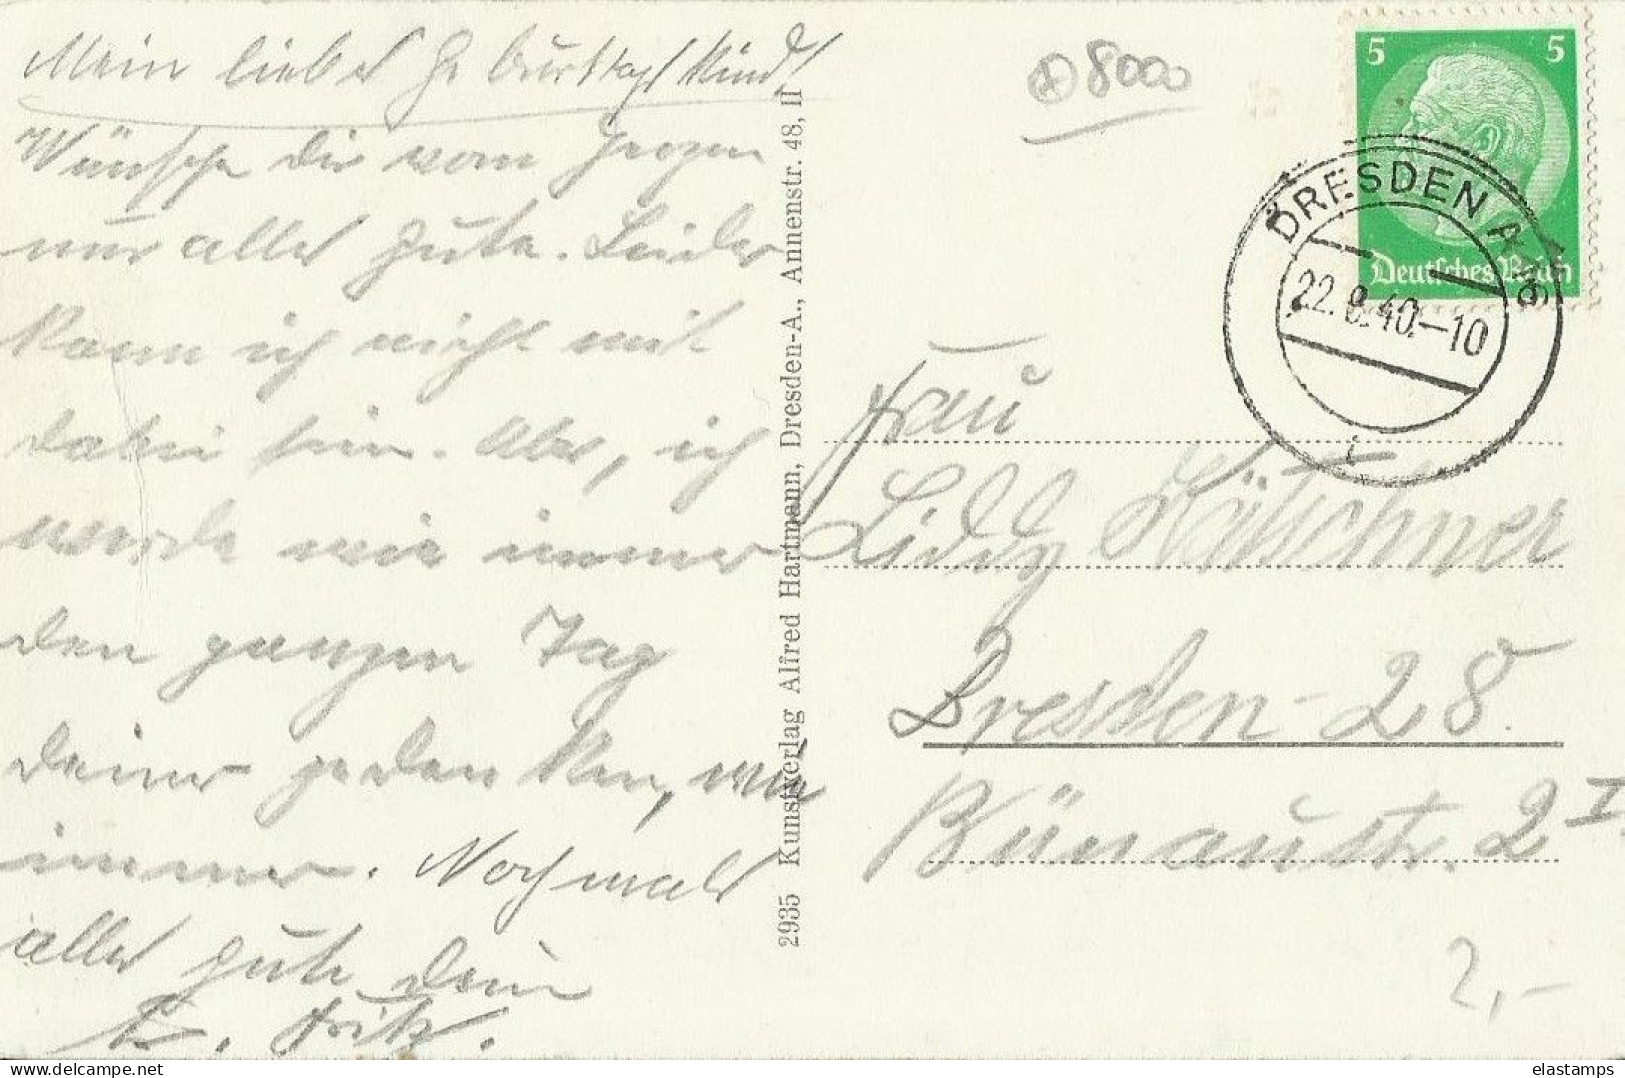 Mein liebes Geburtstagskind!
Wünsche Dir vom Herzen
nur alles Gute. Leider
kann ich nicht mit
dabei sein. Aber, ich
werde wie immer
den ganzen Tag
Deiner gedenken, wie
immer. Nochmals
alles Gute Dein
Fritz.
2935 Kunstverlag Alfred Hartmann, Dresden-A., Annenstr. 48, II
8000
5 5
Deutsches Reich
DRESDEN A
22.8.40.-10
Frau
Liddy Kätschner
Dresden-28.
Bünaustr. 2 I.
2,-
elastamps